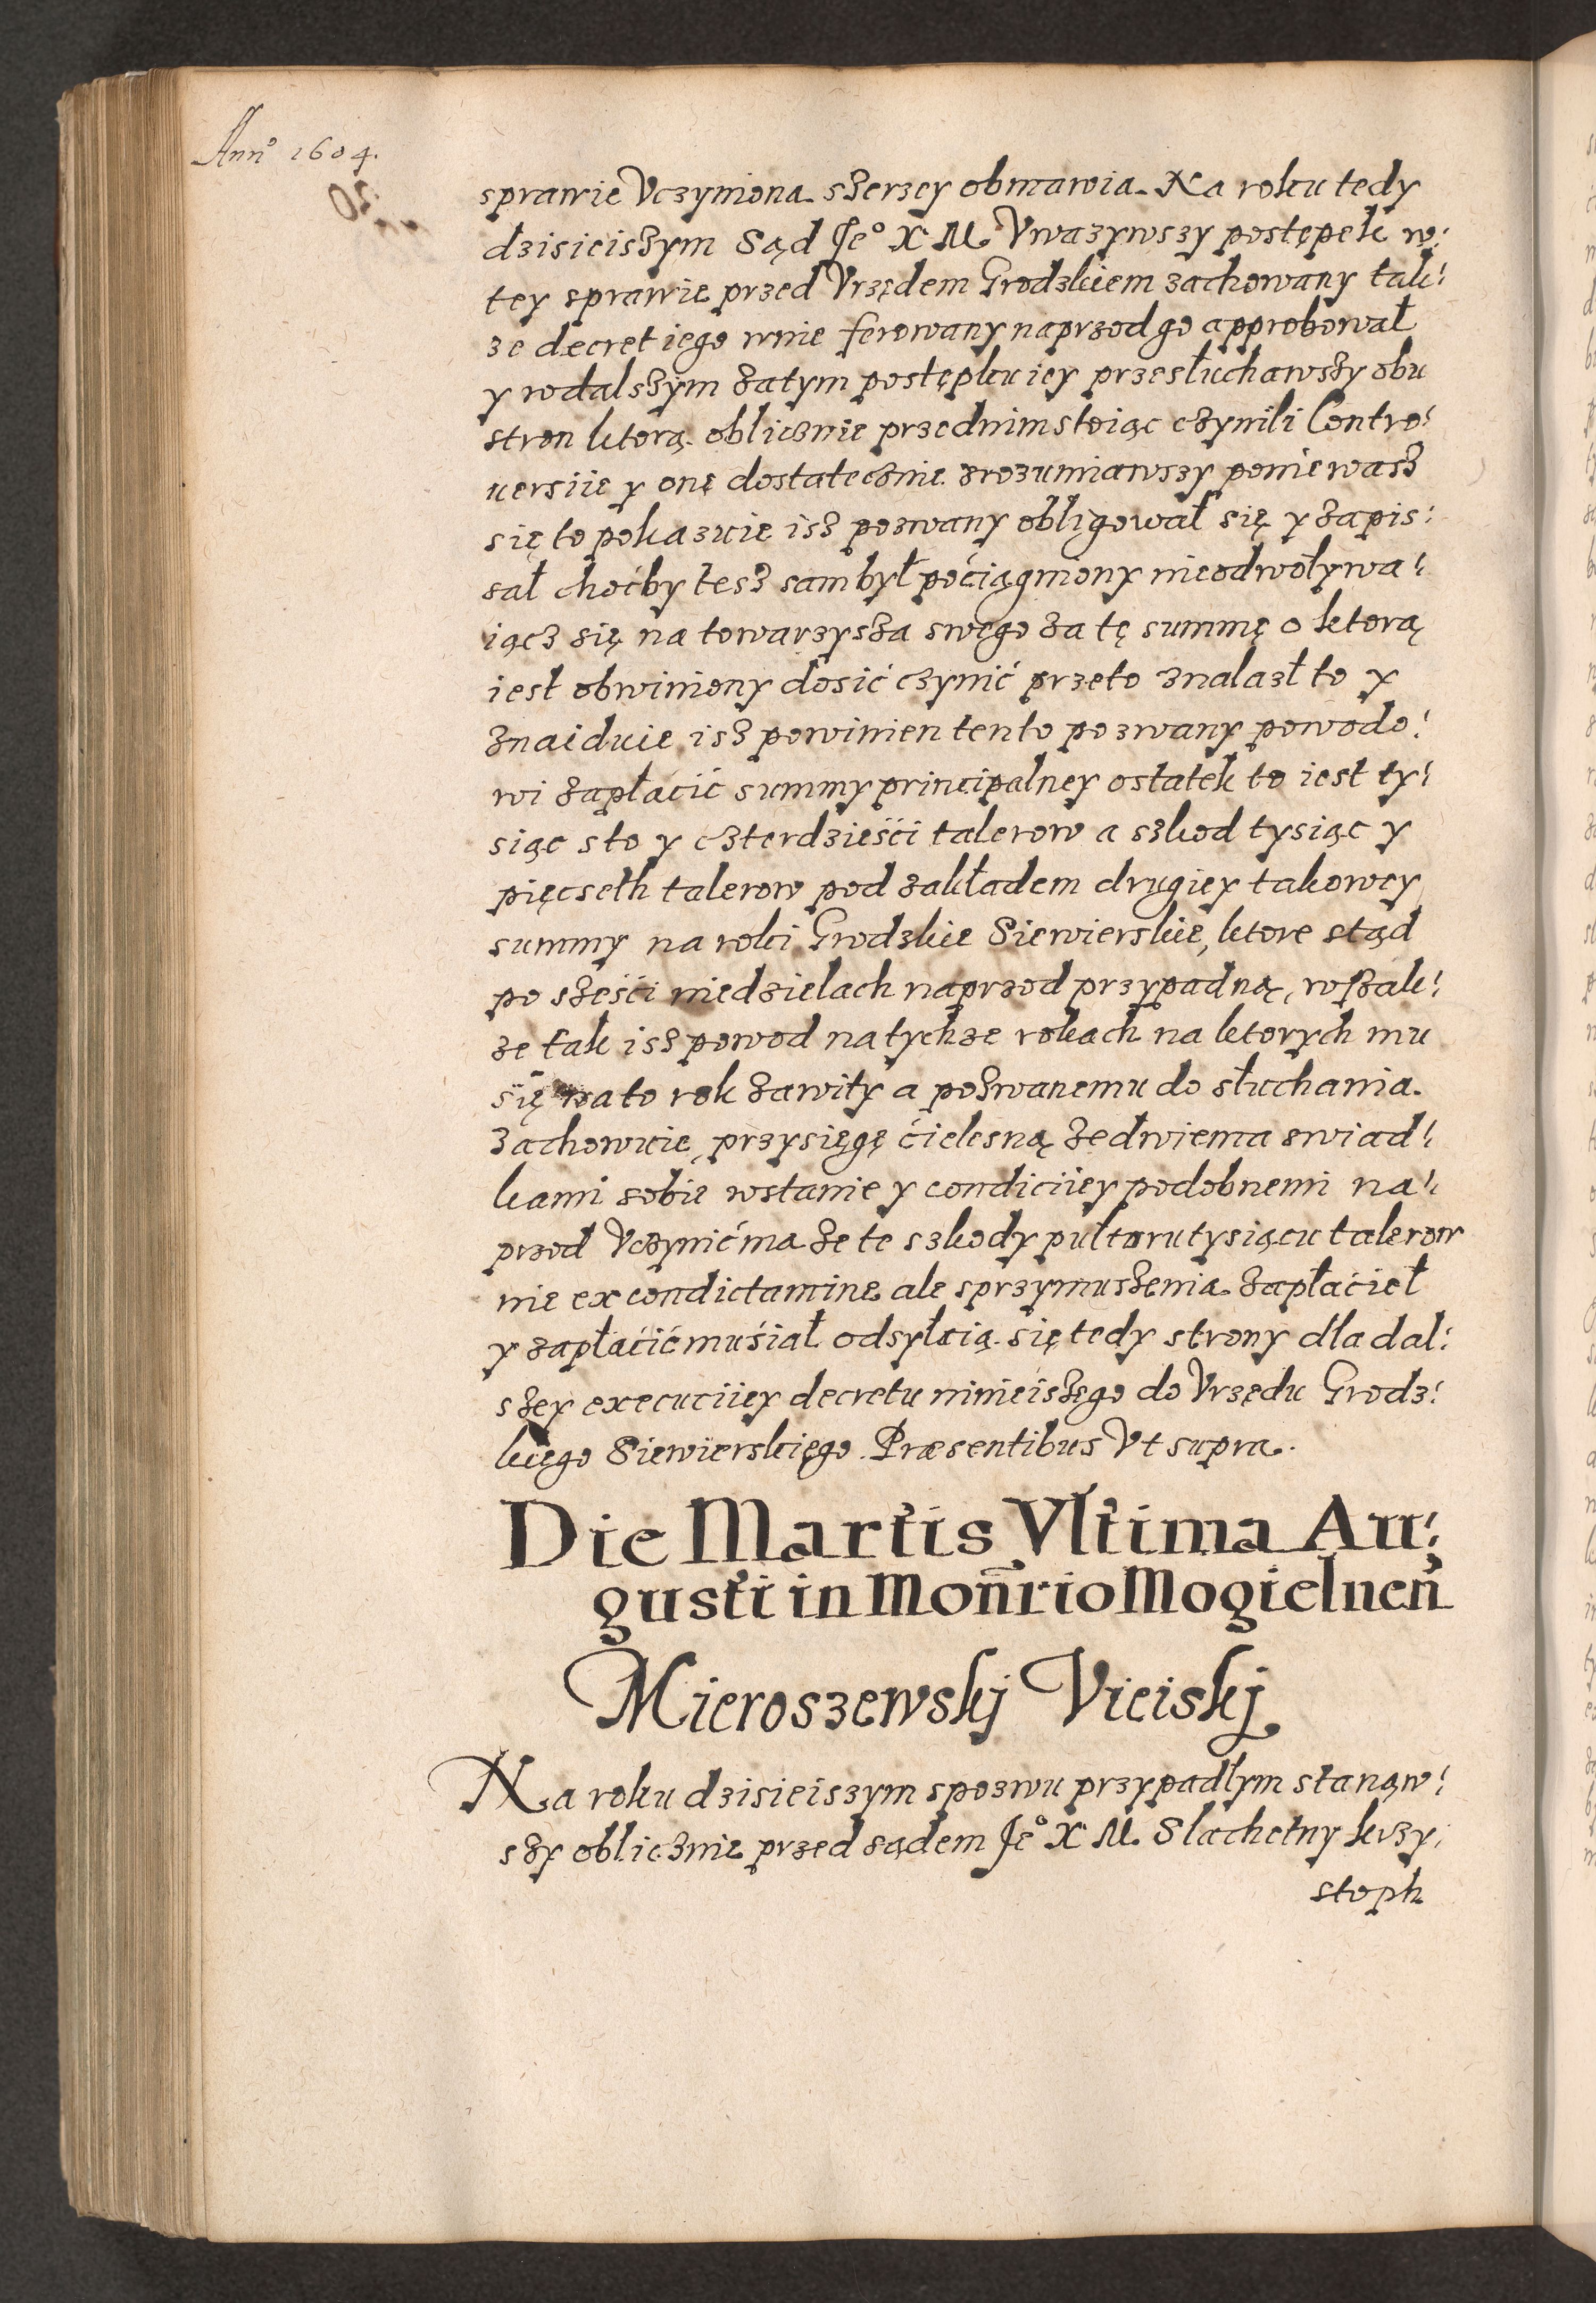 Ann° 1604.
sprawie Vczyniona szerzey obmawia. Na roku tedy
dzisieiszym Sąd Je° X M. Vwazywszy postępek w:
tey sprawie przed Vrzędem Grodzkiem zachowany tak:
ze decret iego wnie ferowany naprzod go approbował
y wdalszym zatym postępku iey przesłuchawszy obu
stron ktorą oblicznie przednim stoiąc czynili Contro:
uersiie y onę dostatecznie zrozumiawszy poniewasz
się to pokazuie isz pozwany obligował się y zapis:
sał choćby tesz sam był pociągniony nieodwoływa:
iącz się na towarzysza swego za tę summę o ktorą
iest obwiniony dosić czynić przeto znalazł to y
znaiduie isz powinien tento pozwany powodo:
wi zapłacić summy principalney ostatek to iest ty:
siąc sto y czterdzieści talerow a szkod tysiąc y
pięcseth talerow pod zakładem drugiey takowey
summy na roki Grodzkie Siewierskie, ktore stąd
po sześci niedzielach naprzod przypadną, wszak:
ze tak isz powod natychze rokach na ktorych mu
się na to rok zawity a pozwanemu do słuchania
zachowuie, przysięgę ćielesną zedwiema swiad:
kami sobie wstanie y condiciiey podobnemi na:
przod Vczynić ma ze te szkody pułtoru tysiącu talerow
nie ex condictamine ale sprzymuszenia zapłacieł
y zapłaćić muśiał odsyłaią się tedy strony dla dal:
szey execuciiey decretu ninieiszego do Vrzędu Grodz:
kiego Siewierskięgo. Præsentibus Vt supra.
Die Martis Vltima Au:
gusti in Moñrio Mogielneñ
Mieroszewskj Vieiskj
Na roku dzisieiszym spozwu przypadłym stanąw:
szy oblicznie przed sądem Je° X M. Slachetny krzy:
stoph